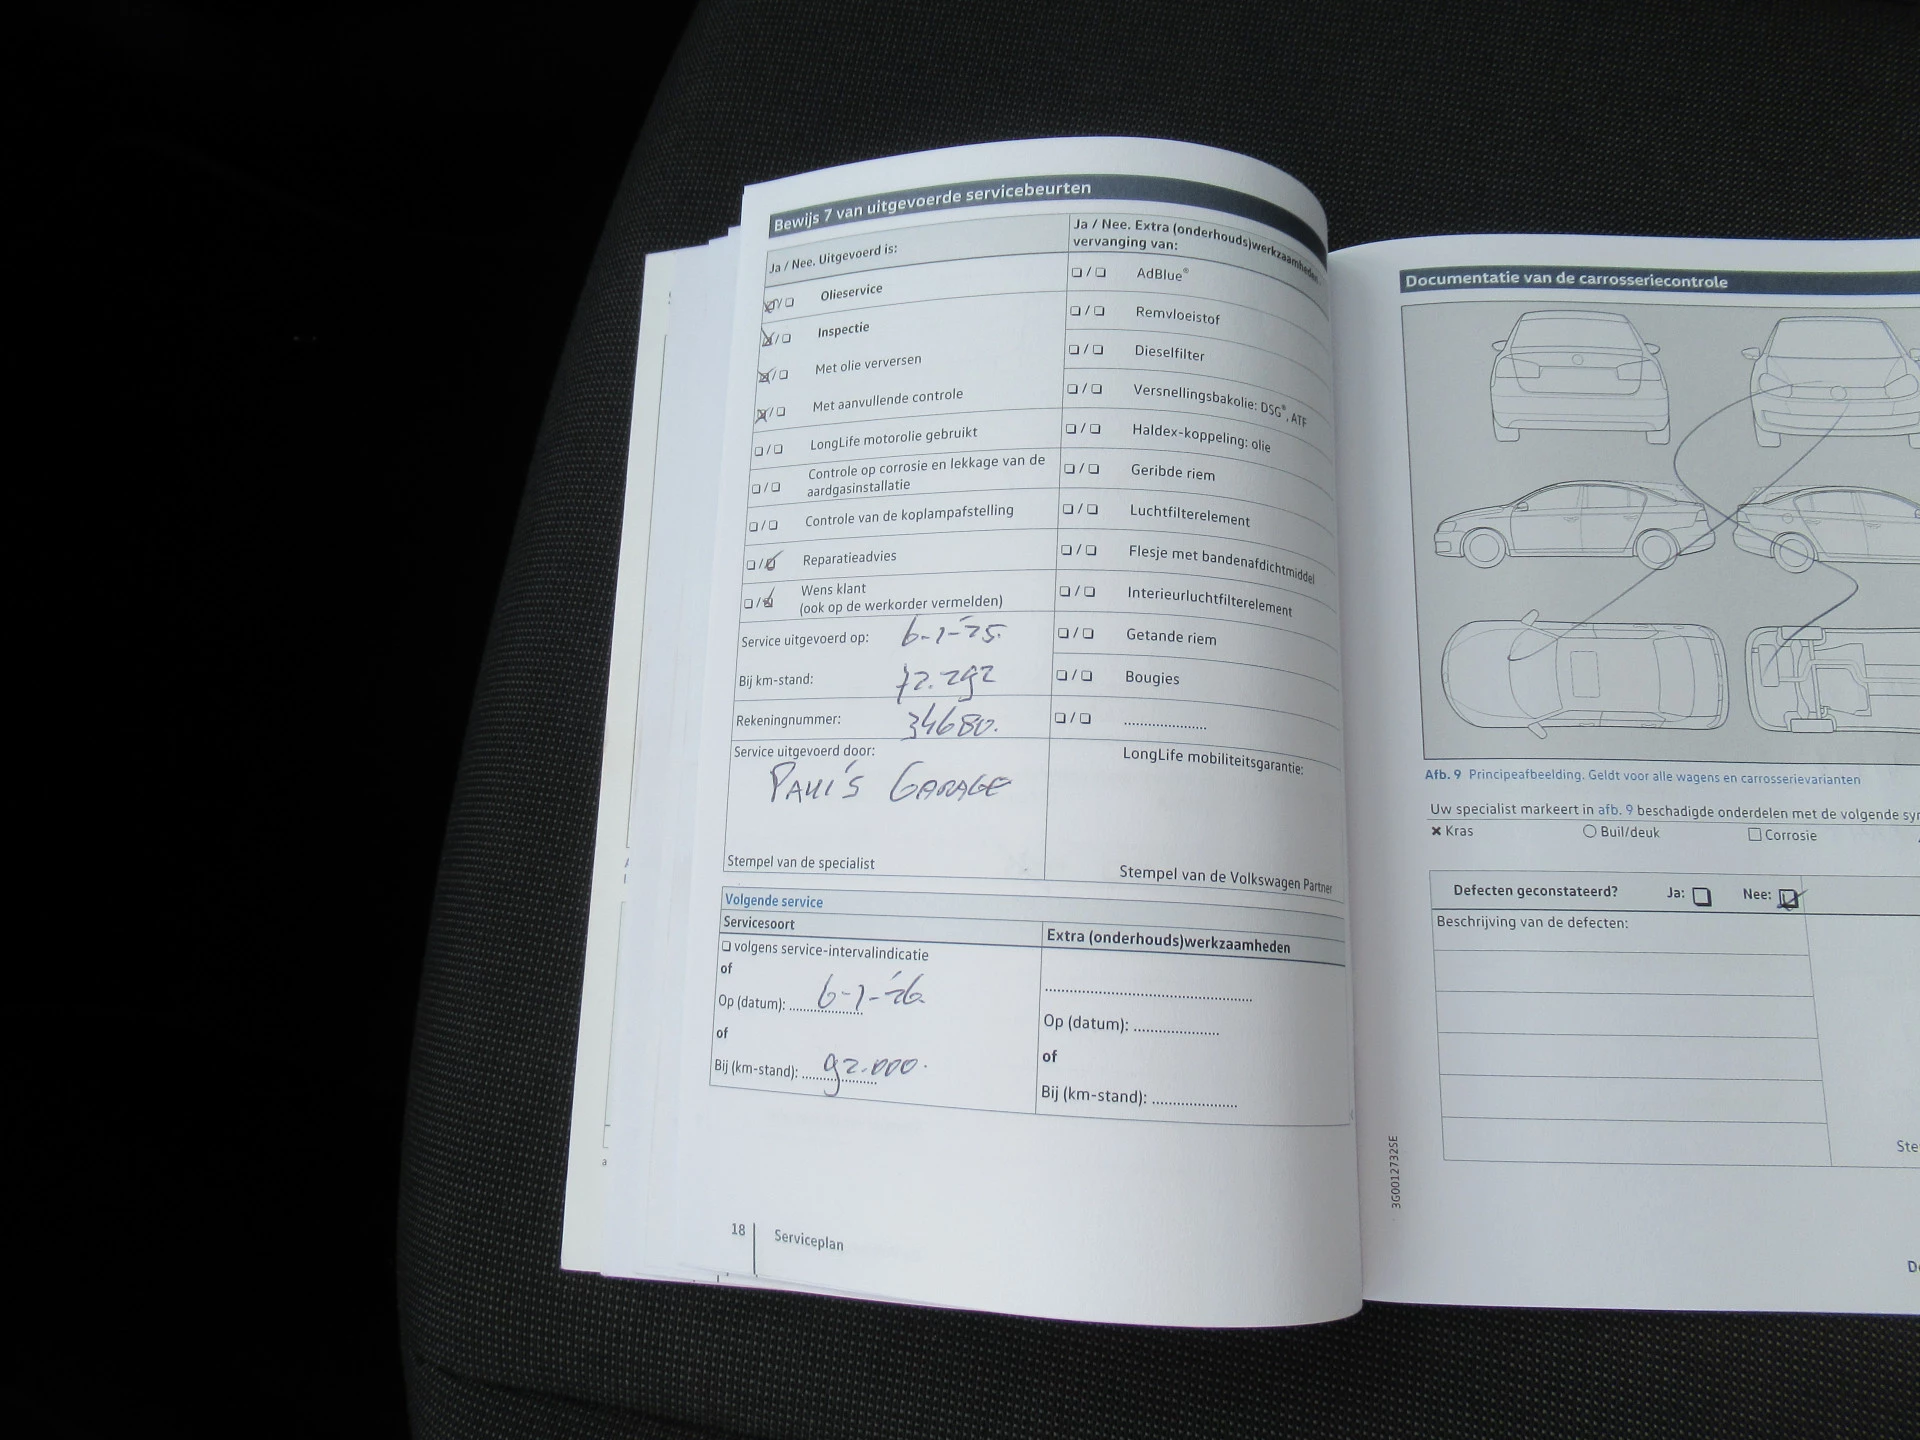 Bewijs 7 van uitgevoerde servicebeurten
Ja / Nee. Uitgevoerd is:
Olieservice
Inspectie
Met olie verversen
Met aanvullende controle
LongLife motorolie gebruikt
Controle op corrosie en lekkage van de
aardgasinstallatie
Controle van de koplampafstelling
Reparatieadvies
Wens klant
(ook op de werkorder vermelden)
Service uitgevoerd op: 6-1-'25.
Bij km-stand: 72.292
Rekeningnummer: 34680.
Service uitgevoerd door:
PAUL'S GARAGE
Stempel van de specialist
Ja / Nee. Extra (onderhouds)werkzaamheden
vervanging van:
AdBlue®
Remvloeistof
Dieselfilter
Versnellingsbakolie: DSG®, ATF
Haldex-koppeling: olie
Geribde riem
Luchtfilterelement
Flesje met bandenafdichtmiddel
Interieurluchtfilterelement
Getande riem
Bougies
....................
LongLife mobiliteitsgarantie:
Stempel van de Volkswagen Partner
Volgende service
Servicesoort
volgens service-intervalindicatie
of
Op (datum): 6-1-'26.
of
Bij (km-stand): 92.000.
Extra (onderhouds)werkzaamheden
Op (datum): ....................
of
Bij (km-stand): ....................
18
Serviceplan
Documentatie van de carrosseriecontrole
Afb. 9 Principeafbeelding. Geldt voor alle wagens en carrosserievarianten
Uw specialist markeert in afb. 9 beschadigde onderdelen met de volgende
Kras
Buil/deuk
Corrosie
Defecten geconstateerd? Ja: Nee:
Beschrijving van de defecten:
3G0012732SE